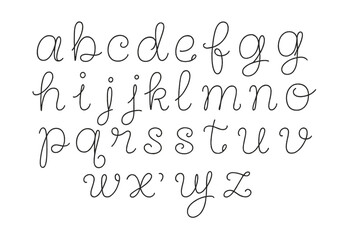 a b c d e f g g
h i j j k l m n o
p q r s s t u v
w x ' y z